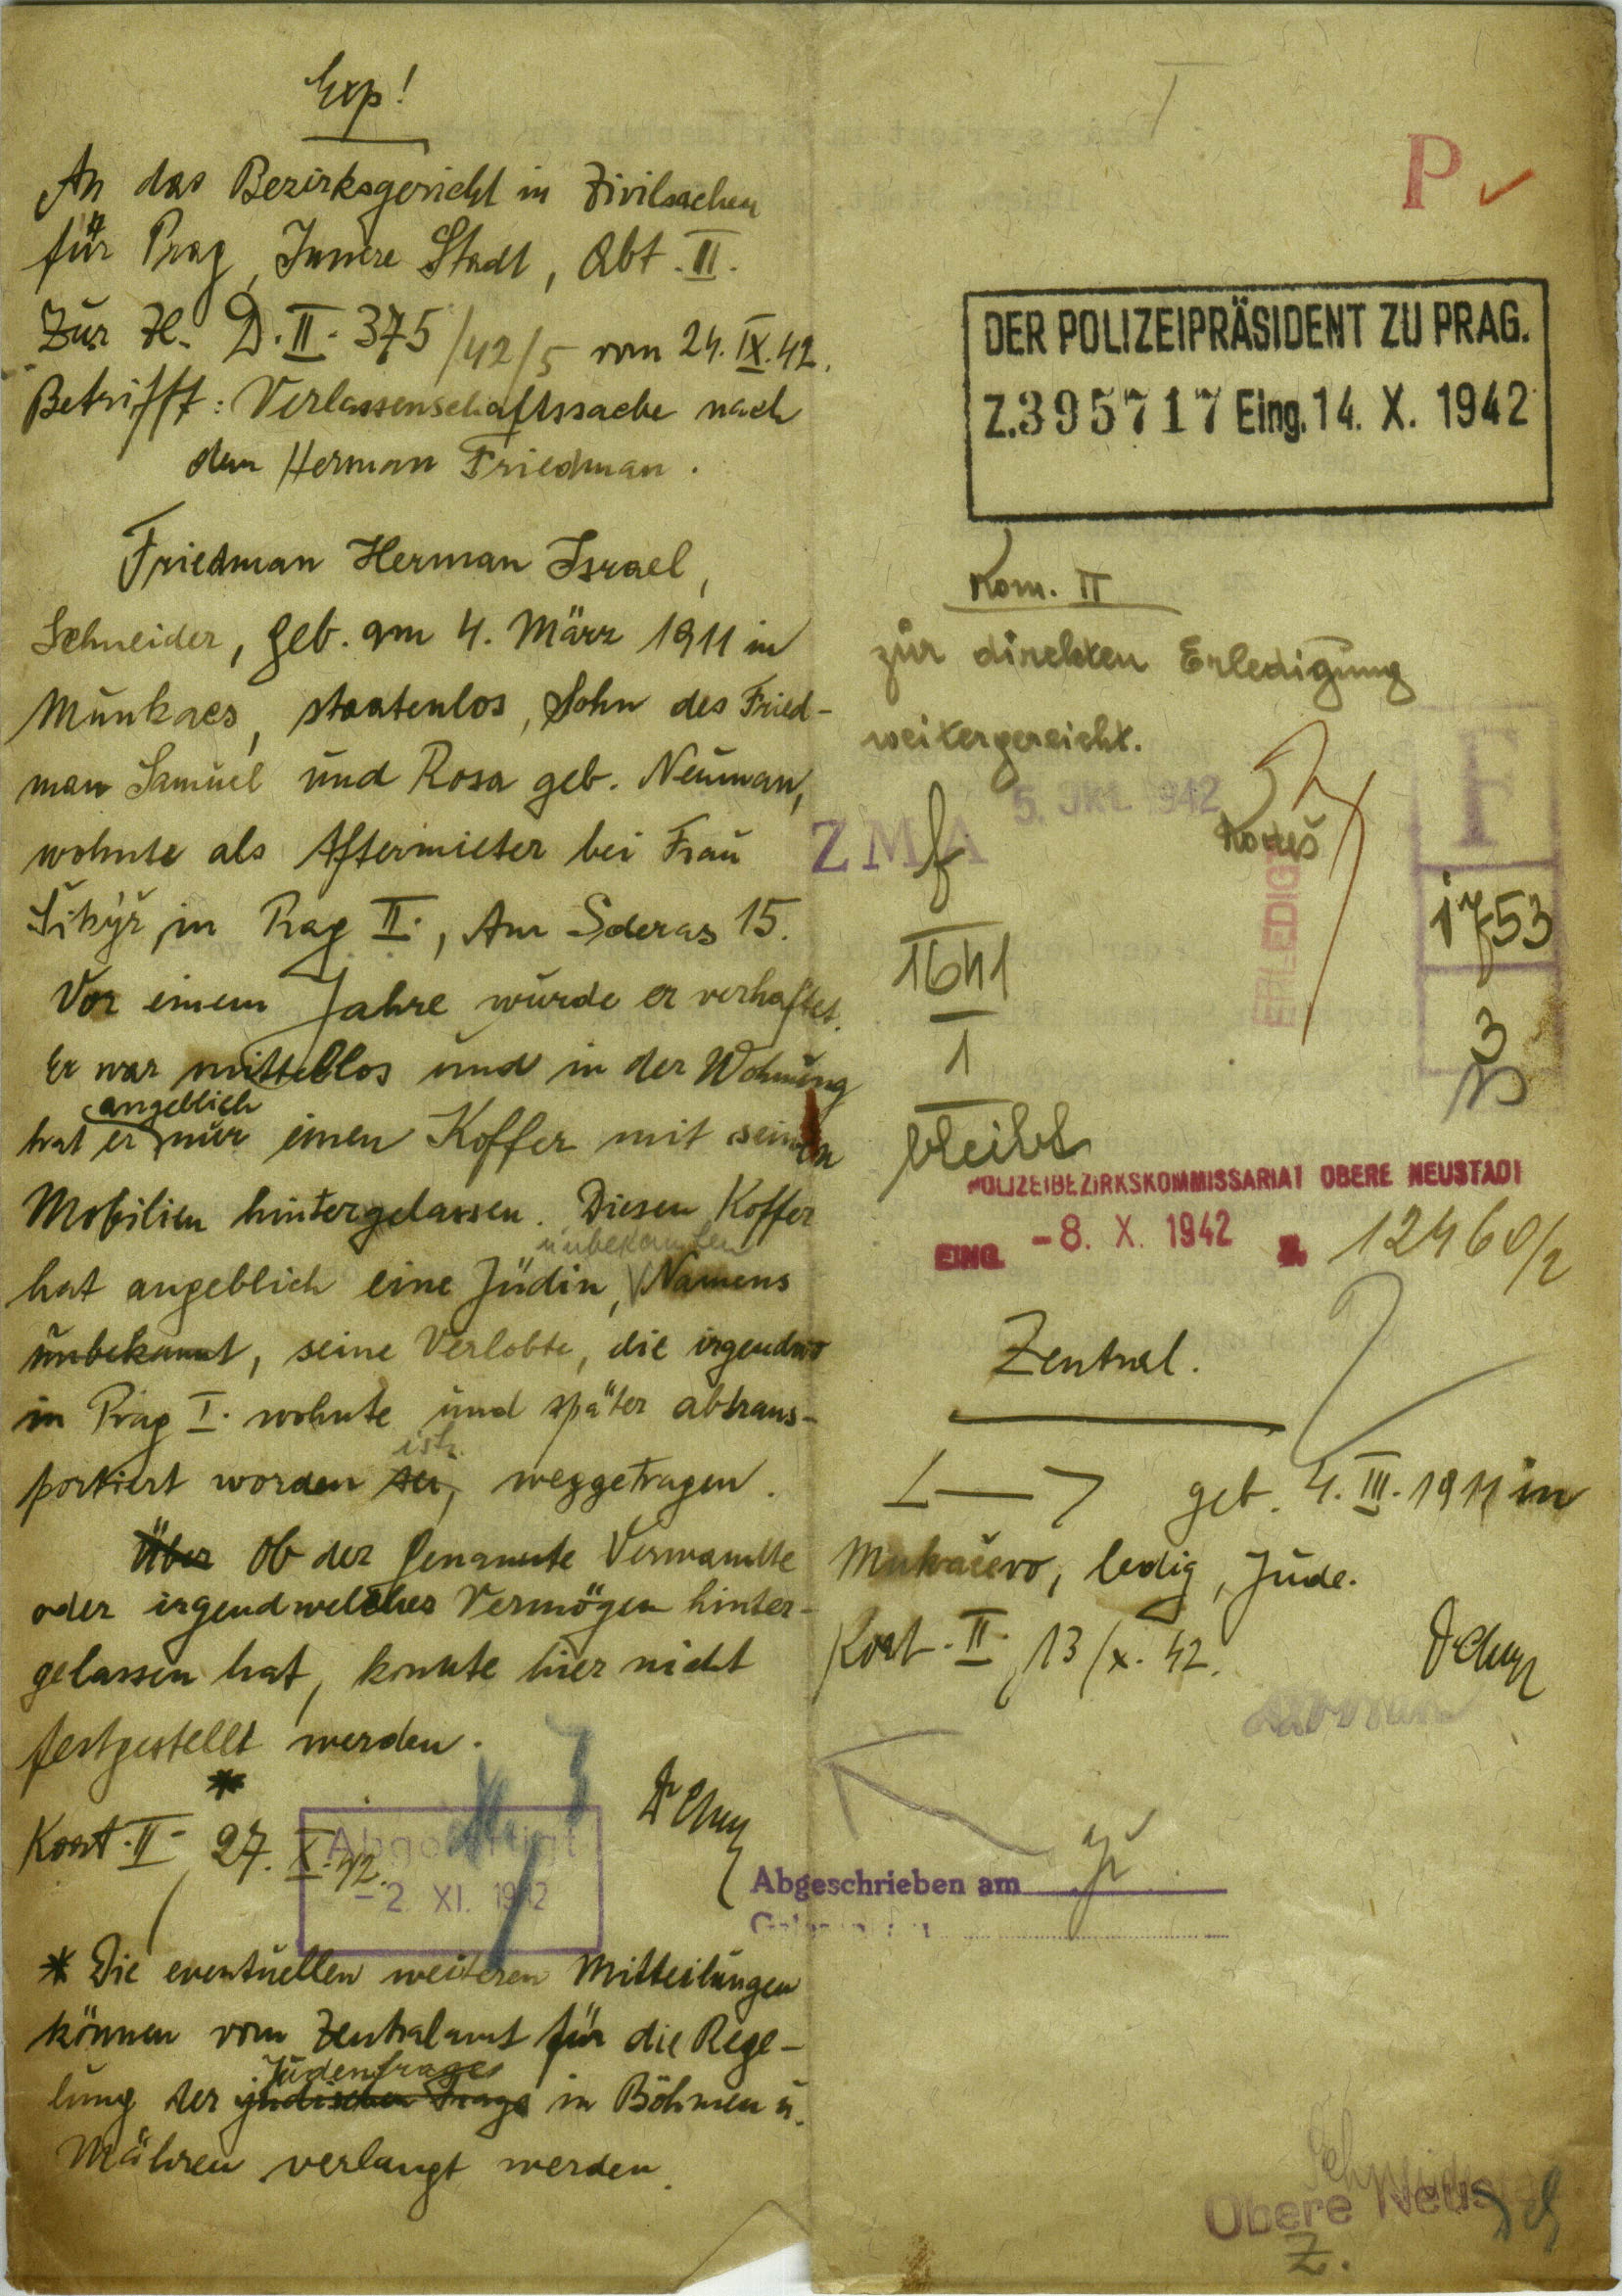 Exp!
An das Bezirksgericht in Zivilsachen
für Prag, Innere Stadt, Abt. II.
Zur Zl. D. II. 375/42/5 vom 24. IX. 42.
Betrifft: Verlassenschaftssache nach
dem Herman Friedman.
Friedman Herman Israel,
Schneider, geb. am 4. März 1911 in
Munkacs, staatenlos, Sohn des Fried-
man Samuel und Rosa geb. Neuman,
wohnte als Aftermieter bei Frau
in Prag II., Am Sderas 15.
Vor einem Jahre wurde er verhaftet.
Er war mittellos und in der Wohnung
angeblich
hat er nur einen Koffer mit seinen
Mobilien hintergelassen. Diesen Koffer
unbekannten
hat angeblich eine Jüdin, Namens
unbekannt, seine Verlobte, die irgendwo
in Prag I. wohnte und später abtrans-
ist
portiert worden sei, weggetragen.
Über Ob der Genannte Verwandte
oder irgendwelches Vermögen hinter-
gelassen hat, konnte hier nicht
festgestellt werden.
*
Kont. II. 27. X. 42.
Abgefertigt
- 2. XI. 1942
* Die eventuellen weiteren Mitteilungen
können vom Zentralamt für die Rege-
Judenfrage
lung der jüdischen Frage in Böhmen u.
Mähren verlangt werden.
P
DER POLIZEIPRÄSIDENT ZU PRAG.
Z. 395717 Eing. 14. X. 1942
Kom. II
zur direkten Erledigung
weitergereicht.
5. OKT. 1942
ZMA
ERLEDIGT
F
1753
3
1641
1
bleibt
POLIZEIBEZIRKSKOMMISSARIAT OBERE NEUSTADT
EING. - 8. X. 1942 Z. 12460/2
Zentral.
geb. 4. III. 1911 in
Mukačevo, ledig, Jude.
Kont. II. 13/X. 42.
Abgeschrieben am
Obere Neus
Z.